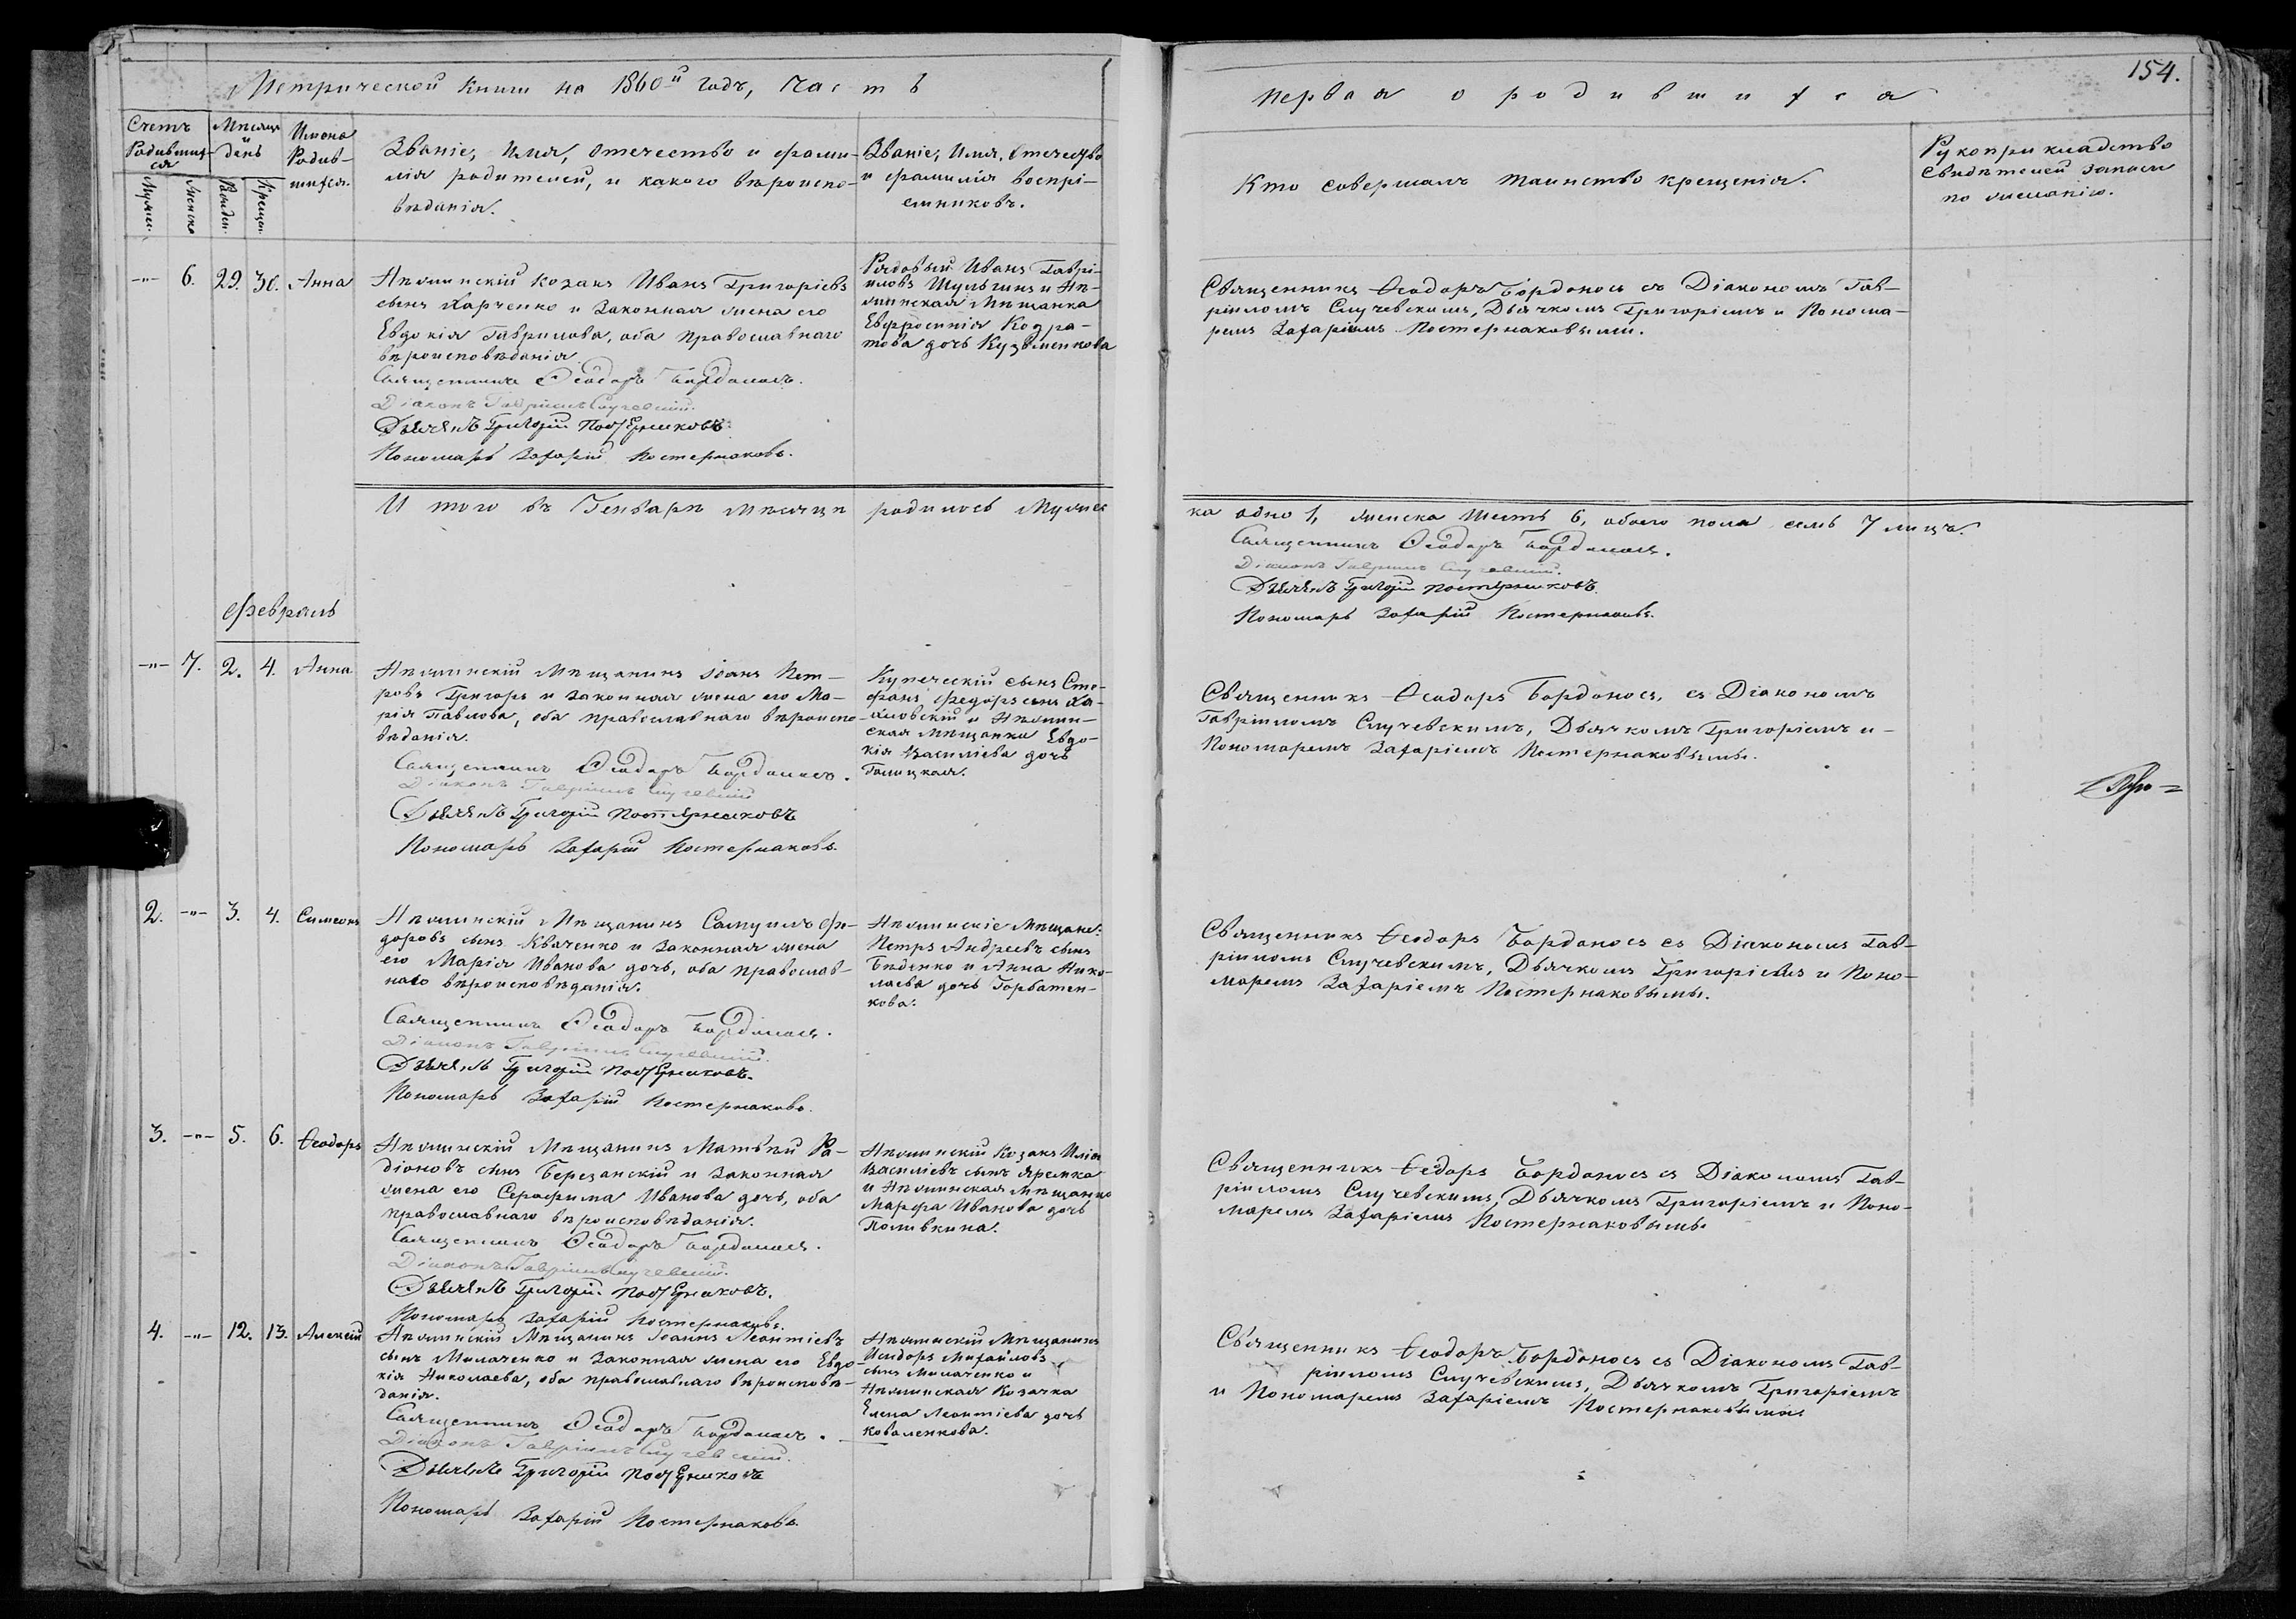 Метрической Книги на 1860й годъ, Часть
первая о родившихся
154.
Счетъ Родившихся
Мѣсяцъ и день
Имена Родившихся.
Званіе, Имя, Отечество и фами-
лія родителей, и какого вѣроиспо-
вѣданія.
Званіе, Имя, Отечество
и фамилія воспрі-
емниковъ.
Кто совершалъ таинство крещенія.
Рукоприкладство
свидѣтелей записи
по желанію.
Мужеск.
Женска
Рожден.
Крещен.
-"- 6. 29. 30. Анна
Нѣжинскій козакъ Иванъ Григоріевъ
сынъ Харченко и Законная жена его
Евдокія Гаврилова, оба православнаго
вѣроисповѣданія
Священникъ Ѳеодоръ Бордоносъ.
Діаконъ Гавріилъ Случевскій.
Дьячекъ Григорій Постернаковъ.
Пономарь Захарій Постернаковъ.
Рядовый Иванъ Гаврі-
иловъ Шульгинъ и Нѣ-
жинская Мѣщанка
Евфросинія Кодра-
това дочь Кузьменкова
Священникъ Ѳеодоръ Бордоносъ съ Діакономъ Гав-
ріиломъ Случевскимъ, Дьячкомъ Григоріемъ и Понома-
ремъ Захаріемъ Постернаковыми.
И того въ Генварѣ мѣсяцѣ родилось Мужес
ка одно 1, женска шесть 6, обоего пола семь 7 лицъ.
Священникъ Ѳеодоръ Бордоносъ.
Діаконъ Гавріилъ Случевскій.
Дьячекъ Григорій Постернаковъ.
Пономарь Захарій Постернаковъ.
Февраль
-"- 7. 2. 4. Анна
Нѣжинскій Мѣщанинъ Іоанъ Пет-
ровъ Григоръ и законная жена его Ма-
рія Павлова, оба православнаго вѣроиспо-
вѣданія.
Священникъ Ѳеодоръ Бордоносъ.
Діаконъ Гавріилъ Случевскій
Дьячекъ Григорій Постернаковъ
Пономарь Захарій Постернаковъ.
Купеческій сынъ Сте-
фанъ Федоръ сынъ Ха-
ловскій и Нѣжин-
ская мѣщанка Евдо-
кія Василіева дочь
Галицкая.
Священникъ Ѳеодоръ Бордоносъ, съ Діакономъ
Гавріиломъ Случевскимъ, Дьячкомъ Григоріемъ и
Пономаремъ Захаріемъ Постернаковыми.
2. -"- 3. 4. Симеонъ
Нѣжинскій Мѣщанинъ Самуилъ Фе-
доровъ сынъ Кваченко и законная жена
его Марія Иванова дочь, оба православ-
наго вѣроисповѣданія.
Священникъ Ѳеодоръ Бордоносъ.
Діаконъ Гавріилъ Случевскій.
Дьячекъ Григорій Постернаковъ.
Пономарь Захарій Постернаковъ.
Нѣжинскіе Мѣщане:
Петръ Андреевъ сынъ
Биденко и Анна Нико-
лаева дочь Горбатен-
кова.
Священникъ Ѳеодоръ Бордоносъ съ Діакономъ Гав-
ріиломъ Случевскимъ, Дьячкомъ Григоріемъ и Поно-
маремъ Захаріемъ Постернаковымы.
3. -"- 5. 6. Ѳеодоръ
Нѣжинскій Мѣщанинъ Матвѣй Ра-
діоновъ сынъ Березанскій и Законная
жена его Серафима Иванова дочь, оба
православнаго вѣроисповѣданія.
Священникъ Ѳеодоръ Бордоносъ.
Діаконъ Гавріилъ Случевскій.
Дьячекъ Григорій Постернаковъ.
Пономарь Захарій Постернаковъ.
Нѣжинскій Козакъ Илія
Василіевъ сынъ Яремка
и Нѣжинская мѣщанка
Марфа Иванова дочь
Поливкина.
Священникъ Ѳедоръ Бордоносъ съ Діакономъ Гав-
ріиломъ Случевскимъ, Дьячкомъ Григоріемъ и Поно-
маремъ Захаріемъ Постернаковымы.
4. -"- 12. 13. Алексій
Нѣжинскій Мѣщанинъ Іоаннъ Леонтіевъ
сынъ Милаченко и Законная жена его Евдо-
кія Николаева, оба православнаго вѣроисповѣ-
данія.
Священникъ Ѳеодоръ Бордоносъ.
Діаконъ Гавріилъ Случевскій.
Дьячекъ Григорій Постернаковъ
Пономарь Захарій Постернаковъ.
Нѣжинскій Мѣщанинъ
Исидоръ Михайловъ
сынъ Милаченко и
Нѣжинская Козачка
Елена Леонтіева дочь
Коваленкова.
Священникъ Ѳеодоръ Бордоносъ съ Діакономъ Гав-
ріиломъ Случевскимъ, Дьячкомъ Григоріемъ
и Пономаремъ Захаріемъ Постернаковыми